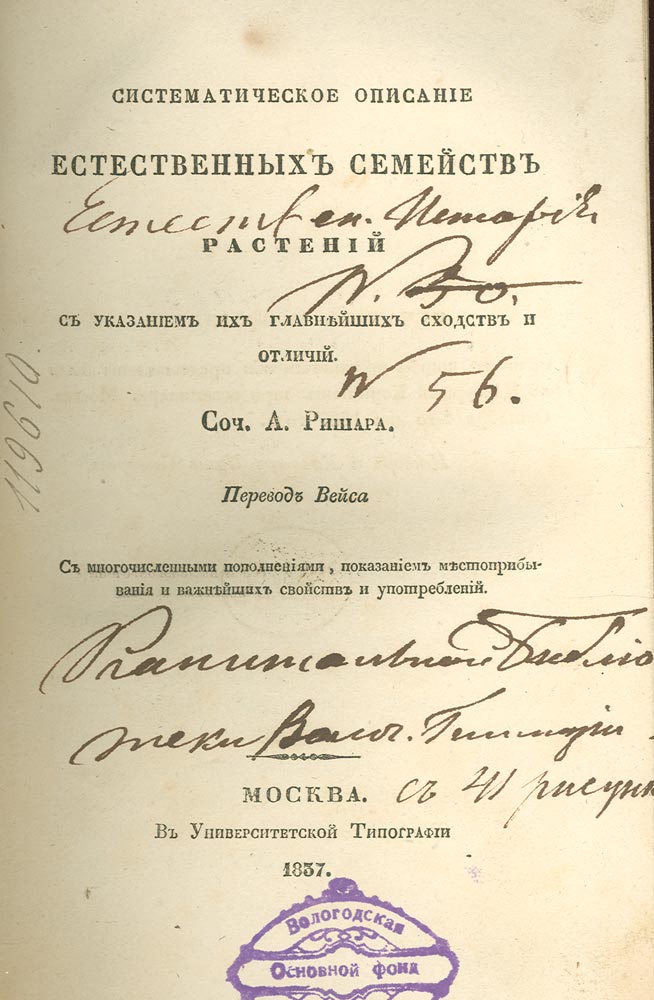 СИСТЕМАТИЧЕСКОЕ ОПИСАНІЕ
ЕСТЕСТВЕННЫХЪ СЕМЕЙСТВЪ
Естествен. Исторія
РАСТЕНІЙ
N. 50.
СЪ УКАЗАНІЕМЪ ИХЪ ГЛАВНѢЙШИХЪ СХОДСТВЪ И
ОТЛИЧІЙ.
N 56.
119610.
Соч. А. Ришара.
Переводъ Вейса
Съ многочисленными пополненіями, показаніемъ мѣстоприбы-
ванія и важнѣйшихъ свойствъ и употребленій.
Фундаментальной Библіо
теки Волог. Гимназіи
МОСКВА.
съ 41 рисунк
Въ Университетской Типографіи
1837.
Вологодская
Основной фонд